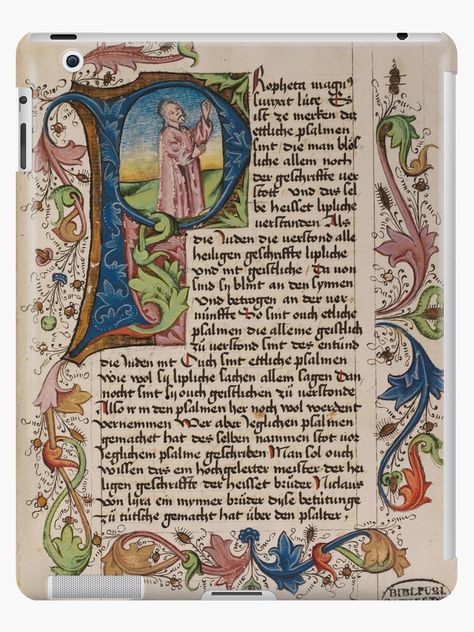 Propheta magnus
surrexit luce Es
ist ze merken das
ettliche psalmen
sint die man blös
liche allein noch
der geschrifte ver
stott vnd das sel
be heisset lipliche
verstanden Als
die Juden die verstond alle
heiligen geschriffte lipliche
vnd nit geistliche / Da von
sind sy blint an den synnen
vnd betrogen an der ver
nunffte Do sint ouch etliche
psalmen die alleine geistlich
zü verstond sint des entünd
die Juden nit Ouch sint ettliche psalmen
wie wol sy lipliche sachen allein sagen Dan
nocht sint sy ouch geistlichen zü verstonde
Also ir in den psalmen her noch wol werdent
vernemmen Wer aber yeglichen psalmen
gemachet hat des selben nammen stot vor
yeglichem psalme geschriben Man sol ouch
wissen das ein hochgelerter meister der hei
ligen geschrifte der heisset brüder Niclaus
von lyra ein mynner brüder dyse betütunge
zü tütsche gemacht hat über den psalter
BIBL.PUBL.